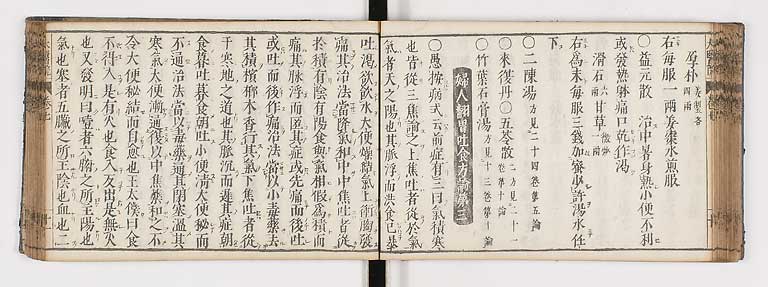 厚朴 姜製各四兩
右每服一兩姜棗水煎服
〇益元散 治中暑身熱小便不利
或發熱霍痛口乾作渴
滑石 六兩 甘草 微炒一兩
右爲末每服三錢加蜜少許湯水任
下
〇二陳湯 方見二十四卷第五論
〇來復丹〇五苓散 二方見二十一卷第十論
〇竹葉石膏湯 方見十三卷第十論
婦人翻胃吐食方論第三
〇愚按病式云前症有三曰氣積寒
也皆從三焦論之上焦吐者從於氣
氣者天之陽也其脉浮而洪食已暴
吐渴欲飲水大便燥結氣上衝胸發
痛其治法當降氣和中中焦吐者從
於積有陰有陽食與氣相假爲積而
痛其脉浮而匿其症或先痛而後吐
或吐而後作痛治法當以小毒藥去
其積檳榔木香行其氣下焦吐者從
于寒地之道也其脉沉而遲其症朝
食暮吐暮食朝吐小便清大便秘而
不通治法當以毒藥通其閉塞溫其
寒氣大便漸通後以中焦藥和之不
令大便秘結而自愈也王太僕曰食
不得入是有火也食入反出是無火
也又發明曰噎者六腑之所主陽也
氣也寒者五臟之所主陰也血也二